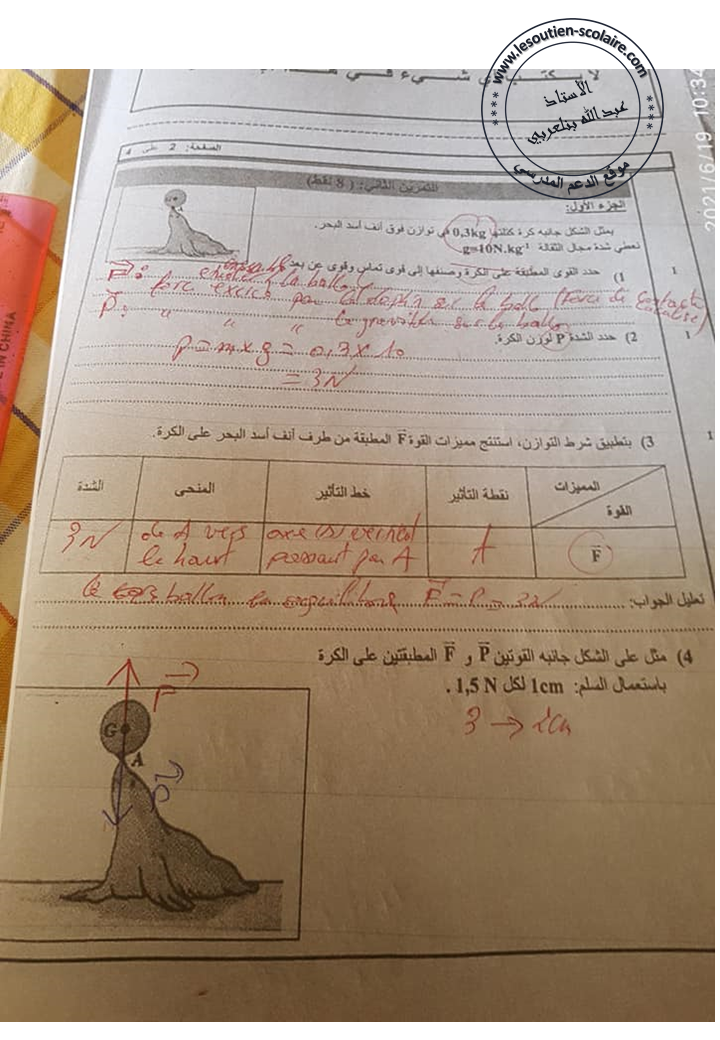 www.lesoutien-scolaire.com
الأستاذ
عبد الله بنلعربي
موقع الدعم المدرسي
لا يكتب شيء في
2021/6/19 10:34
E IN CHINA
الصفحة: 2 على 4
التمرين الثاني: ( 8 نقط)
الجزء الأول:
يمثل الشكل جانبه كرة كتلتها 0,3kg في توازن فوق أنف أسد البحر.
نعطي شدة مجال الثقالة g=10N.kg⁻¹
1 1) حدد القوى المطبقة على الكرة وصنفها إلى قوى تماس وقوى عن بعد
F : force exercé par la sur le ball (Force de contact
P : " " " la sur le ballon
1 2) حدد الشدة P لوزن الكرة.
P = m x g = 0,3 x 10
= 3N
1 3) بتطبيق شرط التوازن، استنتج مميزات القوة F المطبقة من طرف أنف أسد البحر على الكرة.
المميزات
القوة
نقطة التأثير
خط التأثير
المنحى
الشدة
F
A
axe vertical passant par A
de A vers le haut
3N
تعليل الجواب:
le ballon en F = P = 3N
4) مثل على الشكل جانبه القوتين P و F المطبقتين على الكرة
باستعمال السلم: 1cm لكل 1,5 N .
3 → 2cm
F
G
A
P